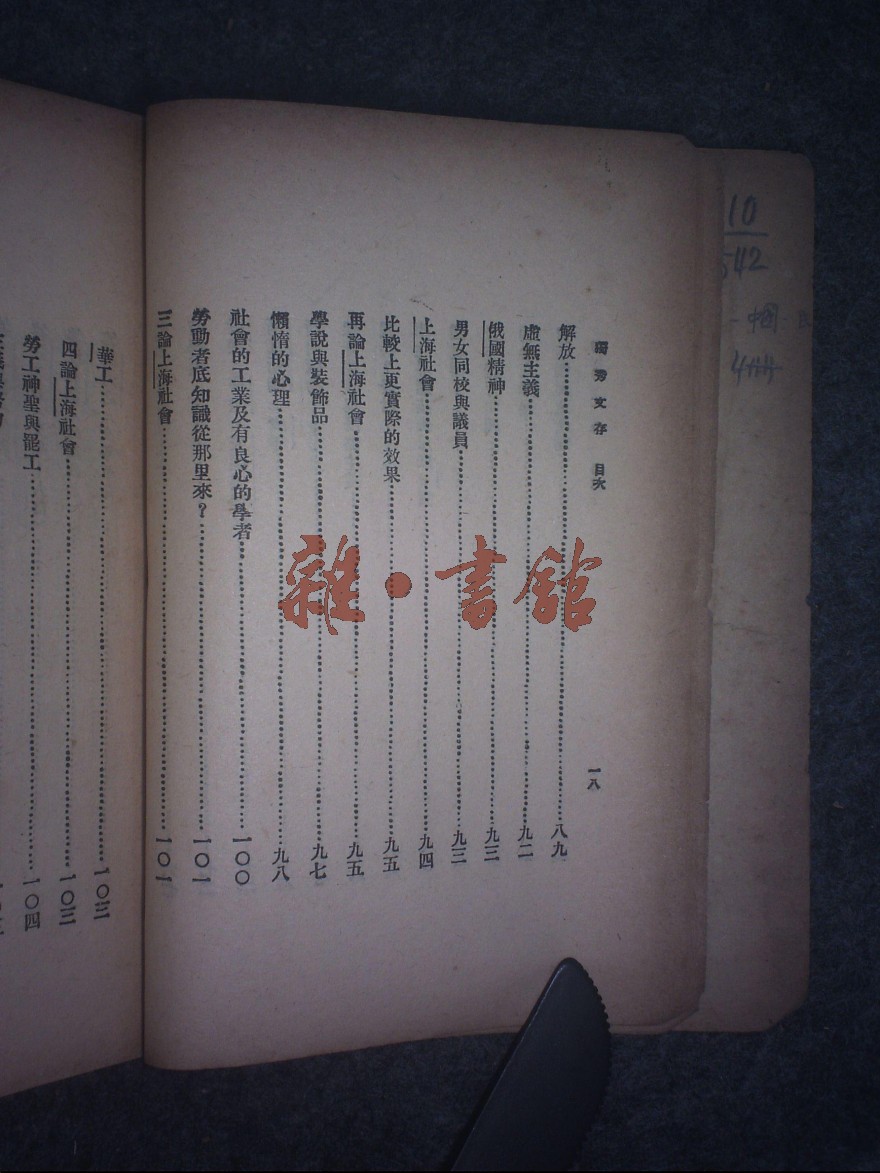 獨秀文存 目次 一八
解放……八九
虛無主義……九二
俄國精神……九三
男女同校與議員……九三
上海社會……九四
比較上更實際的效果……九五
再論上海社會……九五
學說與裝飾品……九七
懶惰的心理……九八
社會的工業及有良心的學者……一〇〇
勞動者底知識從那里來？……一〇一
三論上海社會……一〇一
華工……一〇三
四論上海社會……一〇三
勞工神聖與罷工……一〇四
雜·書館
10
542
中國